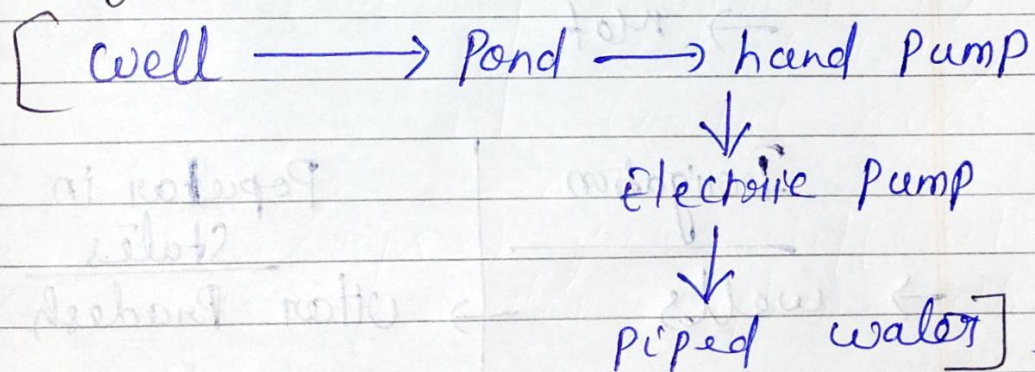 [ Well → Pond → hand Pump
↓
Electric Pump
↓
Piped water ]